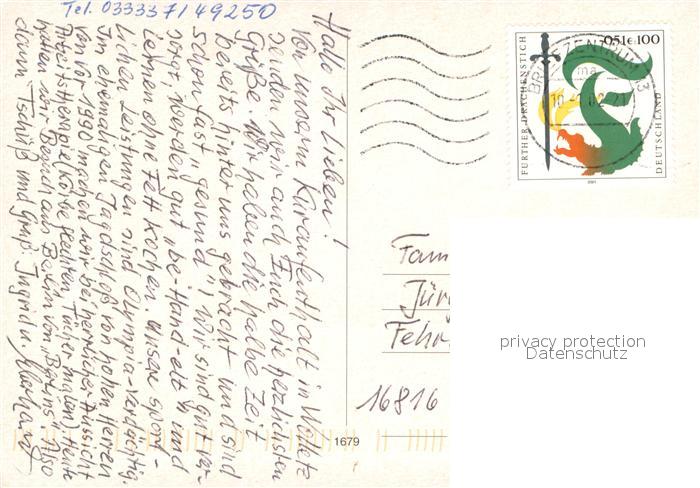 Tel. 033337/49250
Hallo Ihr Lieben!
Von unserm Kuraufenthalt in
senden wir auch Euch die herzlichsten
Grüße. Wir haben die halbe Zeit
bereits hinter uns gebracht und sind
schon fast "gesund"! Wir sind gut ver-
sorgt werden gut "be-Hand-elt" und
lernen ohne Fett kochen. Unsere sport-
lichen Leistungen sind Olympia-verdächtig.
Im ehemaligen Jagdschloß von hohen Herren
von vor 1990 machen wir bei herrlicher Aussicht
Arbeitstherapie (Körbe flechten Tücher malen) Heute
hatten wir Besuch aus Berlin von Also
dann Tschüß und Gruß Ingrid
FURTHER DRACHENSTICH
0,51 € 100
DEUTSCHLAND
2001
BRIEFZENTRUM
Fam
Jür
Fehr
16816
1679
privacy protection
Datenschutz